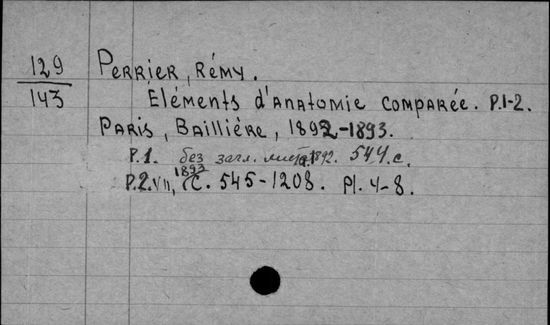 129
143
Perrier, Rémy.
Eléments d'anatomie comparée. P.1-2.
Paris, Baillière, 1892-1893.
P.1. без загл. листа. 1892. 544 с.
P.2. VII, 1893 С. 545-1208. Pl. 4-8.